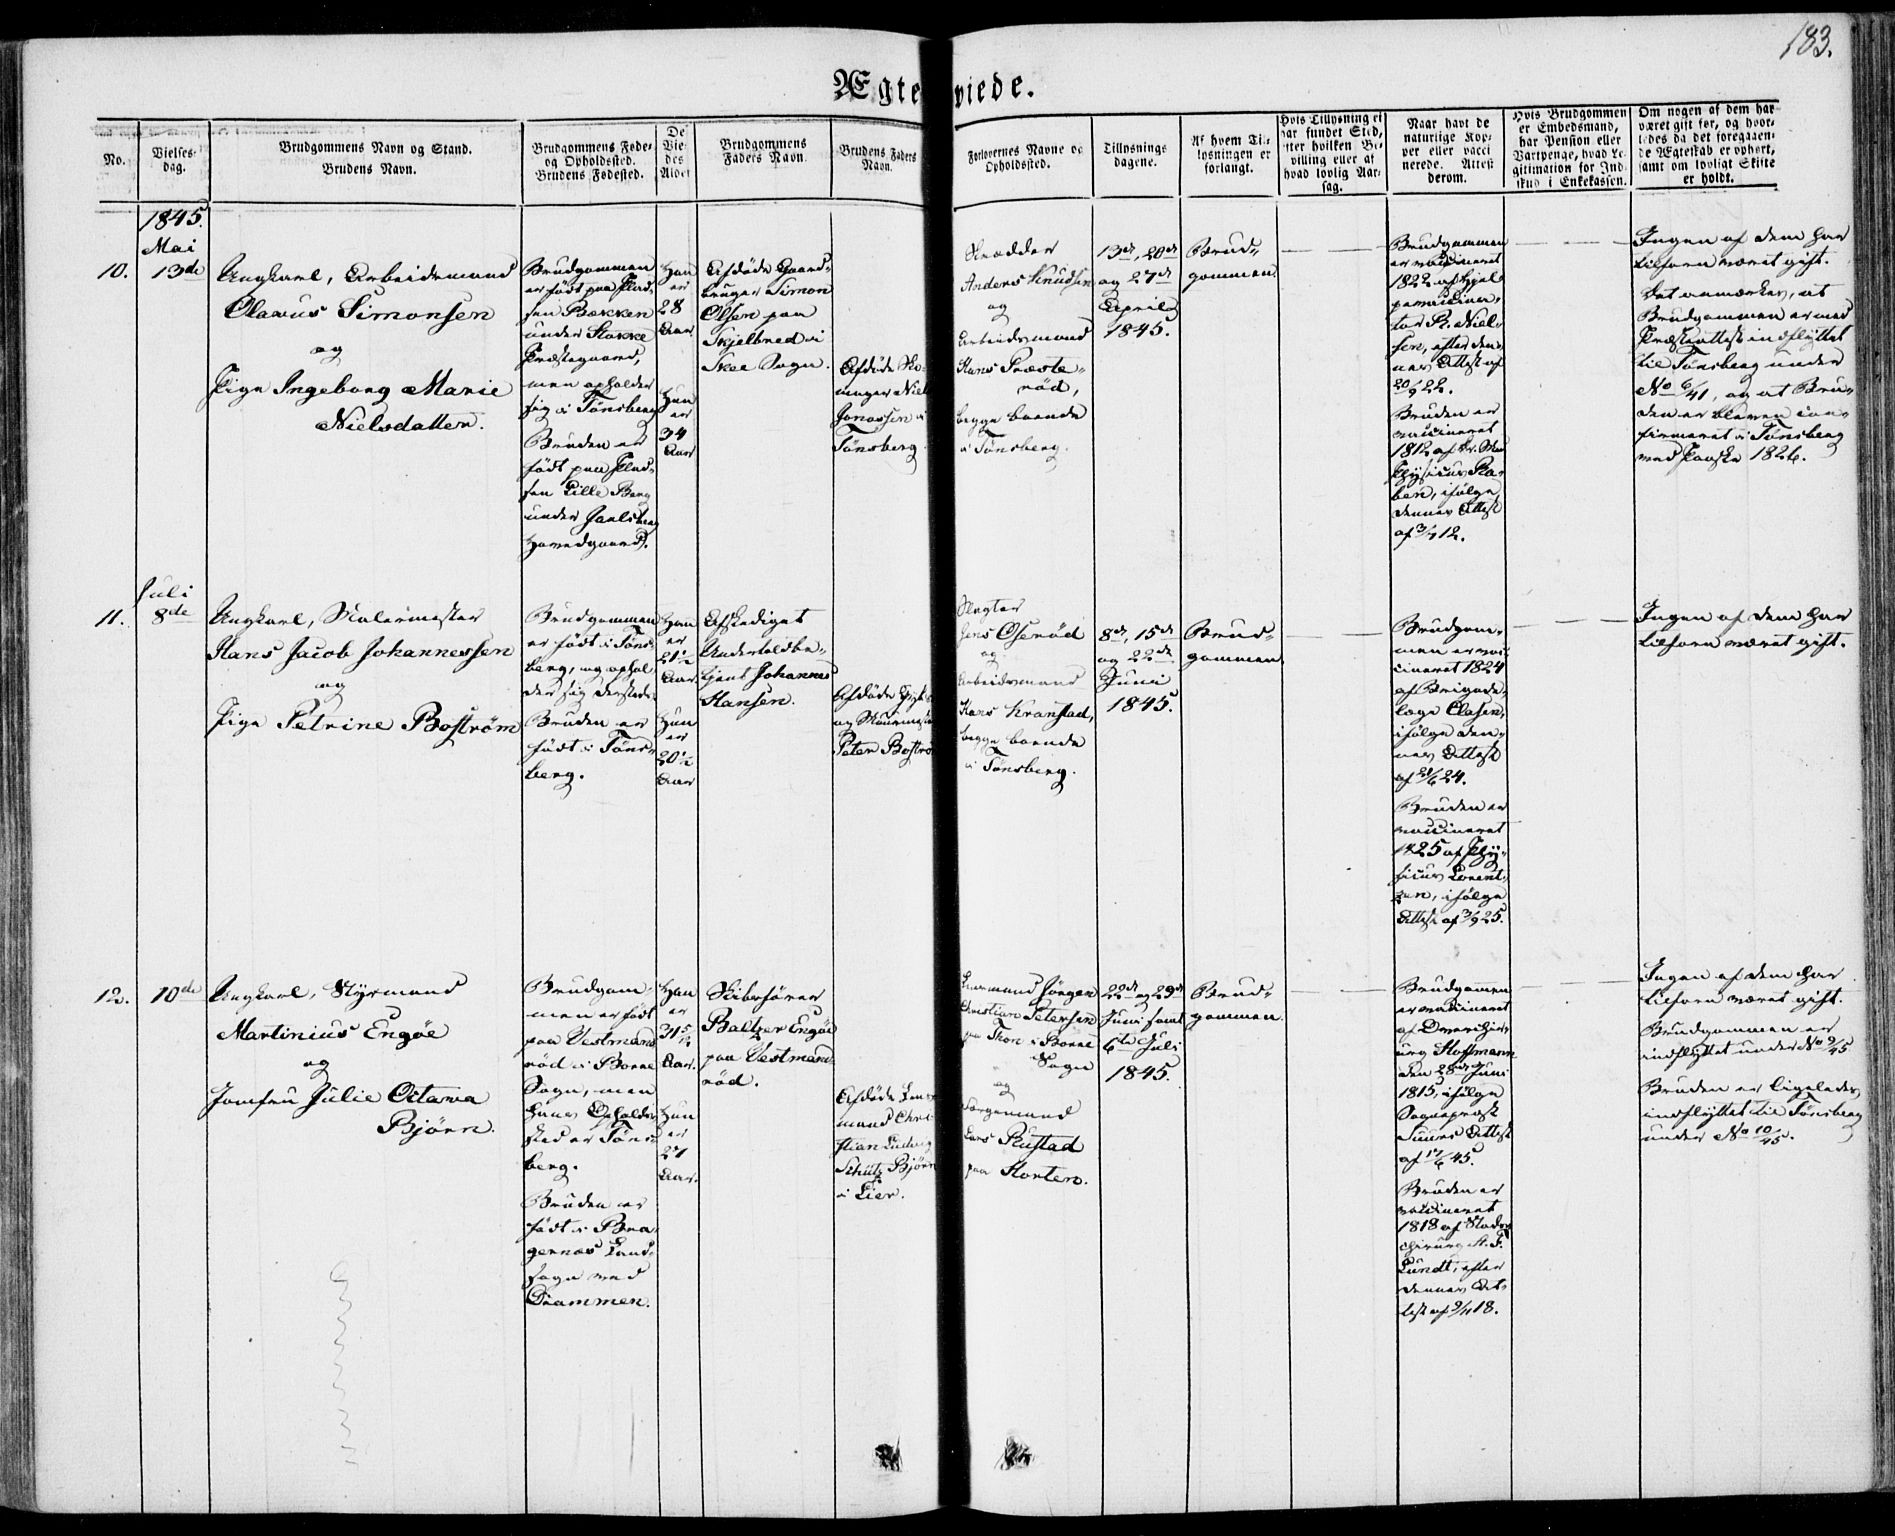 183.
Ægteviede.
No.
Vielses-
dag.
Brudgommens Navn og Stand.
Brudens Navn.
Brudgommens Føde-
og Opholdssted.
Brudens Fødested.
De
Vie-
des
Alder
Brudgommens
Faders Navn.
Brudens Faders
Navn.
Forlovernes Navne og
Opholdssted.
Tillysnings
dagene.
Af hvem Til-
lysningen er
forlangt.
Hvis Tillysning ei
har fundet Sted,
efter hvilken Be-
villing eller af
hvad lovlig Aar-
sag.
Naar havt de
naturlige Kop-
per eller vacci
nerede. Attest
derom.
Hvis Brudgommen
er Embedsmand,
har Pension eller
Vartpenge, hvad Le-
gitimation for Ind-
skud i Enkekassen.
Om nogen af dem har
været gift før, og hvor-
ledes da det foregaaen-
de Ægteskab er ophørt,
samt om lovligt Skifte
er holdt.
1845.
Mai
10.
13de
Ungkarl, Arbeidsmand
Olavus Simonsen
og
Pige Ingeborg Marie
Nielsdatter.
Brudgommen
er født paa Plad-
sen Bækken
under Stokke
Præstegaard,
men opholder
sig i Tønsberg
Bruden er
født paa Plad-
sen Lille Berg
under Jarlsberg
Hovedgaard.
Han
er
28
Aar.
Hun
er
34
Aar
Afdøde Gaard-
bruger Simon
Olsen paa
Skjelbred i
Skee Sogn.
Afdøde Sko-
mager Niels
Jonassen i
Tønsberg.
Skrædder
Anders Knudsen
og
Arbeidsmand
Hans Præste-
rød,
begge boende
i Tønsberg.
13de, 20de
og 27de
April
1845.
Brud-
gommen
Brudgommen
er vaccineret
1822 af Hjel-
pevaccina-
tor R. Niel-
sen, efter den-
nes Attest af
20/9 22.
Bruden er
vaccineret
1812 af
Physicus Ra-
ben, ifølge
dennes Attest
af 3/7 12.
Ingen af dem har
tilforn været gift.
Det anmærkes, at
Brudgommen er med
Præsteattest indflyttet
til Tønsberg under
No 6/41, og at Bru-
den er bleven con-
firmeret i Tønsberg
ved Paaske 1826.
Juli
11.
8de
Ungkarl, Malermester
Hans Jacob Johannessen
og
Pige Petrine Boström
Brudgommen
er født i Tøns-
berg, og ophol-
der sig dersteds.
Bruden er
født i Tøns-
berg.
Han
er
21½
Aar
Hun
er
20½
Aar
Afskediget
Undertoldbe-
tjent Johannes
Hansen.
Afdøde
og Muurmester
Peter Boströ
Slagter
Jens Oserød
og
Arbeidsmand
Hans Kranstad,
begge boende
i Tønsberg.
8de, 15de
og 22de
Juni
1845.
Brud-
gommen
Brudgom-
men er vac-
cineret 1824
af Brigade-
læge Clasen,
ifølge den-
nes Attest
af 28/6 24.
Bruden er
vaccineret
1825 af Phy-
sicus Lorent-
zen, ifølge
Attest af 3/9 25.
Ingen af dem har
tilforn været gift.
12.
10de
Ungkarl, Styrmand
Martinius Engøe
og
Jomfru Julie Octavia
Bjørn.
Brudgom-
men er født
paa Vestmand-
rød i Borre
Sogn, men
hans Opholds-
sted er Tøns-
berg.
Bruden er
født i Bra-
gernæs Land-
sogn ved
Drammen.
Han
er
31 5/12
Aar.
Hun
er
27
Aar.
Skibsfører
Baltzer Engøe
paa Vestmand-
rød.
Afdøde Lens-
mand Chri-
stian Ludvig
Schütz Bjørn
i Lier.
Lensmand Jørgen
Christian Petersen
paa Thon i Borre
Sogn
og
Sorgemund
Lars Rustad
paa Horten.
22de og 29de
Juni samt
6te Juli
1845.
Brud-
gommen.
Brudgommen
er vaccineret
af Overchir-
urg Hoffmann
den 28de Juni
1815, ifølge
Sogneprest
Suurs Attest
af 17/6 45.
Bruden er
vaccineret
1818 af Stads-
chirurg H. F.
Lundt, efter
dennes At-
test af 9/11 18.
Ingen af dem har
tilforn været gift.
Brudgommen er
indflyttet under No 9/45
Bruden er ligeledes
indflyttet til Tønsberg
under No 10/45.